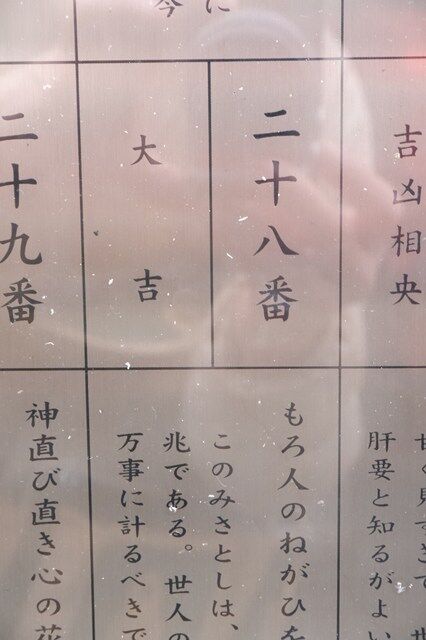 吉凶相央
肝要と知るがよい
今
に
二十八番
大吉
もろ人のねがひを
このみさとしは、
兆である。世人の
万事に計るべきで
二十九番
神直び直き心の花